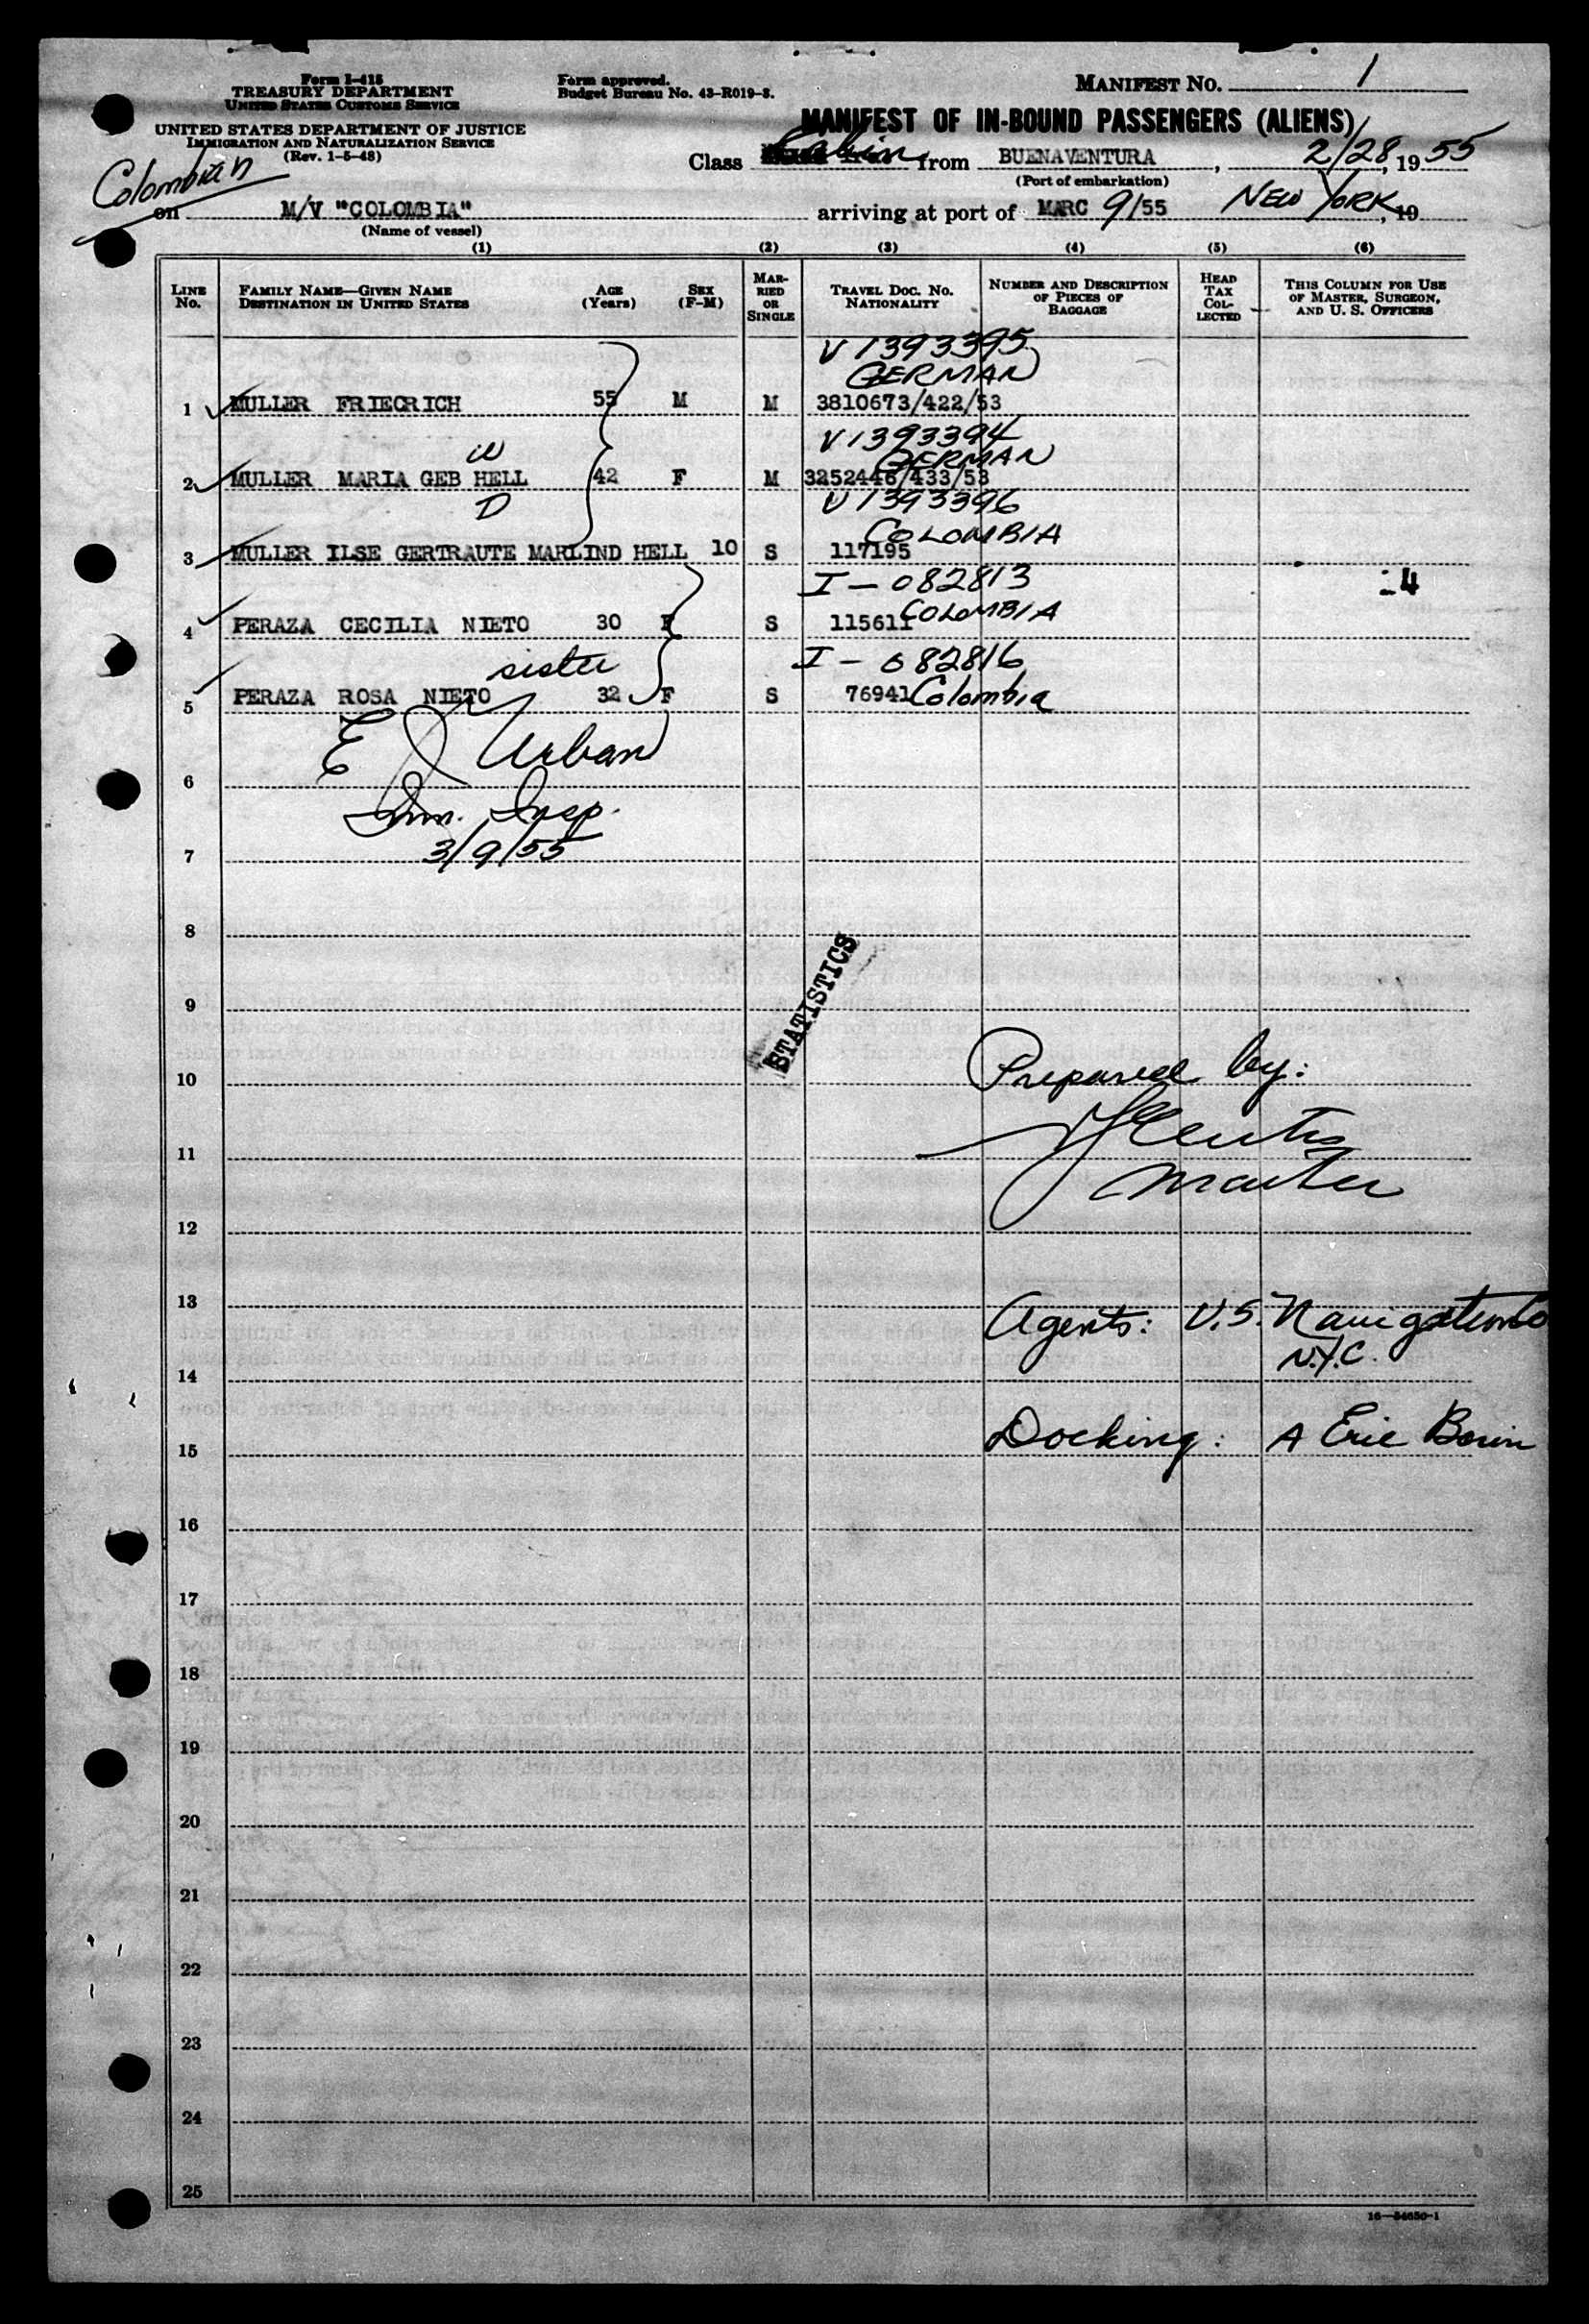 Form I-415
TREASURY DEPARTMENT
UNITED STATES CUSTOMS SERVICE
UNITED STATES DEPARTMENT OF JUSTICE
IMMIGRATION AND NATURALIZATION SERVICE
(Rev. 1-5-48)
Form approved.
Budget Bureau No. 43-R019-3.
MANIFEST No. 1
MANIFEST OF IN-BOUND PASSENGERS (ALIENS)
Class Cabin from BUENAVENTURA, 2/28, 1955
(Port of embarkation)
Colombian
on M/V "COLOMBIA" arriving at port of MARC 9/55 NEW YORK, 19
(Name of vessel)
(1) (2) (3) (4) (5) (6)
LINE No. FAMILY NAME—GIVEN NAME DESTINATION IN UNITED STATES AGE (Years) SEX (F-M) MARRIED OR SINGLE TRAVEL DOC. No. NATIONALITY NUMBER AND DESCRIPTION OF PIECES OF BAGGAGE HEAD TAX COLLECTED THIS COLUMN FOR USE OF MASTER, SURGEON, AND U. S. OFFICERS
V 1393395
GERMAN
1 MULLER FRIECRICH 55 M M 3810673/422/53
V 1393394
W GERMAN
2 MULLER MARIA GEB HELL 42 F M 3252446/433/53
D V 1393396
COLOMBIA
3 MULLER ILSE GERTRAUTE MARLIND HELL 10 S 117195
I - 082813 4
4 PERAZA CECILIA NIETO 30 F S 115611 COLOMBIA
sister I - 082816
5 PERAZA ROSA NIETO 32 F S 76941 Colombia
E J Urban
6
Imm. Insp.
7 3/9/55
8
STATISTICS
9
10 Prepared by:
11
Master
12
13 Agents: U.S. Navigation Co
N.Y.C.
14
15 Docking: A Eric
16
17
18
19
20
21
22
23
24
25
16—54650-1